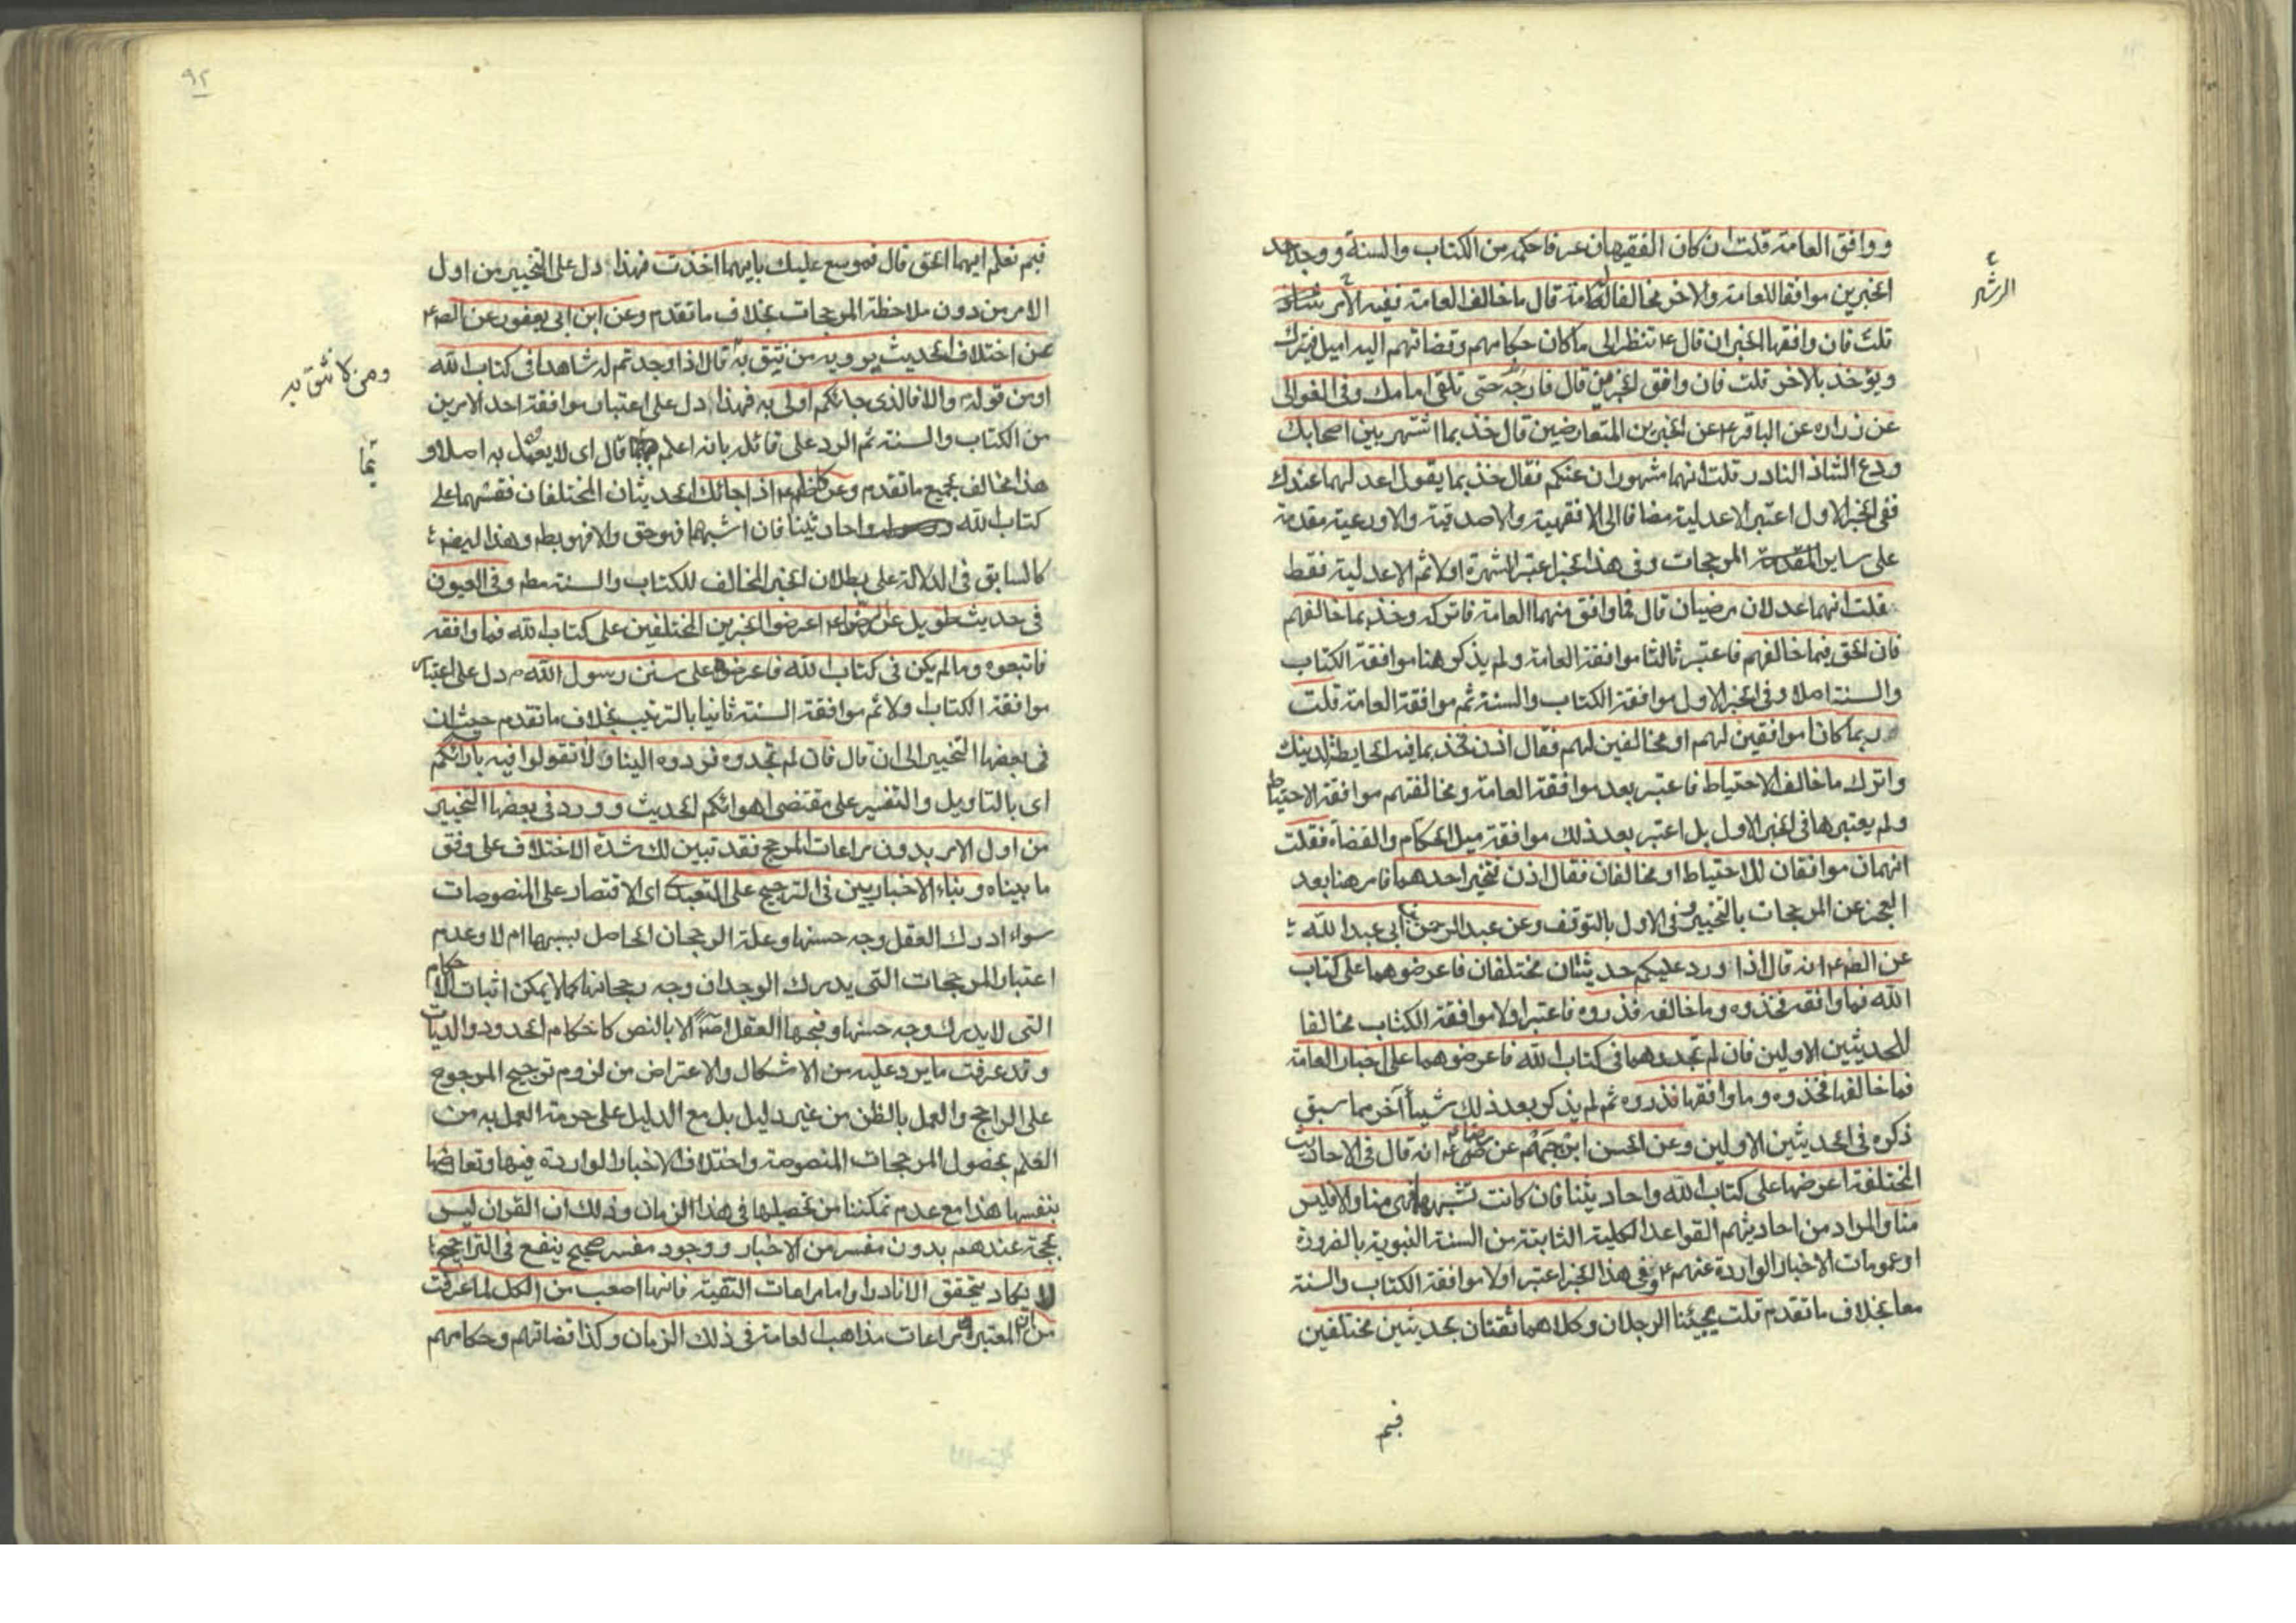 ووافق العامة قلت ان كان الفقيهان عرفا حكمه من الكتاب والسنة ووجد احد
الخبرين موافقا للعامة والاخر مخالفا للعامة قال ما خالف العامة ففيه الرشاد
الرشد
قلت فان وافقها الخبران قال ع تنظر الى ما كان حكامهم وقضاتهم اليه اميل فيترك
ويؤخذ بالاخر قلت فان وافق الخبرين قال فارجه حتى تلقى امامك وفي الغوالي
عن زراره عن الباقر ع عن الخبرين المتعارضين قال خذ بما اشتهر بين اصحابك
ودع الشاذ النادر قلت انهما مشهوران عنكم فقال خذ بما يقول اعدلهما عندك
ففي الخبر الاول اعتبر الاعدلية مضافا الى الافقهية والاصدقية والاورعية مقدمة
على ساير المرجحات وفي هذا الخبر اعتبر الشهرة اولا ثم الاعدلية فقط
فقلت انهما عدلان مرضيان قال فما وافق منهما العامة فاتركه وخذ بما خالفهم
فان الحق فيما خالفهم فاعتبر ثالثا موافقة العامة ولم يذكر هنا موافقة الكتاب
والسنة اصلا وفي الخبر الاول موافقة الكتاب والسنة ثم موافقة العامة قلت
ربما كانا موافقين لهم او مخالفين لهم فقال اذن فخذ بما فيه الحايطة لدينك
واترك ما خالف الاحتياط فاعتبر بعد موافقة العامة ومخالفتهم موافقة الاحتياط
ولم يعتبرها في الخبر الاول بل اعتبر بعد ذلك موافقة ميل الحكام والقضاة فقلت
انهما موافقان للاحتياط او مخالفان فقال اذن فتخير احدهما فامر هنا بعد
العجز عن المرجحات بالتخيير وفي الاول بالتوقف وعن عبد الرحمن بن ابي عبد الله
عن الص ع انه قال اذا ورد عليكم حديثان مختلفان فاعرضوهما على كتاب
الله فما وافقه فخذوه وما خالفه فذروه فاعتبر اولا موافقة الكتاب مخالفا
للحديثين الاولين فان لم تجدهما في كتاب الله فاعرضوهما على اخبار العامة
فما خالفها فخذوه وما وافقها فذروه ثم لم يذكر بعد ذلك شيأ آخر مما سبق
ذكره في الحديثين الاولين وعن الحسن ابن جهم عن الرضا ع انه قال في الاحاديث
المختلفة اعرضها على كتاب الله واحاديثنا فان كانت تشبههما فهي منا والا فليس
منا والمراد من احاديثهم القواعد الكلية الثابتة من السنة النبوية بالضرورة
او عمومات الاخبار الواردة عنهم ع وفي هذا الخبر اعتبر اولا موافقة الكتاب والسنة
معا بخلاف ما تقدم قلت يجيئنا الرجلان وكلاهما ثقتان بحديثين مختلفين
فبم
٩٢
فبم نعلم ايهما الحق قال فموسع عليك بايهما اخذت فهذا دل على التخيير من اول
الامر من دون ملاحظة المرجحات بخلاف ما تقدم وعن ابن ابي يعفور عن الص ع
عن اختلاف الحديث يرويه من نثق به قال اذا وجدتم له شاهدا في كتاب الله
ومن لا نثق به
او من قوله والا فالذي جائكم اولى به فهذا دل على اعتبار موافقة احد الامرين
من الكتاب والسنة ثم الرد على قائله بانه اعلم بما قال اي لا يعمل به اصلا و
هذا مخالف بجميع ما تقدم وعن الكاظم ع اذا جائك الحديثان المختلفان فقسهما على
كتاب الله واحاديثنا فان اشبههما فهو حق والا فهو بطم وهذا ايضا
كالسابق في الدلالة على بطلان الخبر المخالف للكتاب والسنة مطم وفي العيون
في حديث طويل عن الرضا ع اعرضوا الخبرين المختلفين على كتاب الله فما وافقه
فاتبعوه وما لم يكن في كتاب الله فاعرضوه على سنن رسول الله ص دل على اعتبار
موافقة الكتاب اولا ثم موافقة السنة ثانيا بالترتيب بخلاف ما تقدم حيث ان
في بعضها التخيير الى ان قال فان لم تجدوه فردوه الينا ولا تقولوا فيه بارائكم
اى بالتاويل والتفسير على مقتضى اهوائكم الحديث وورد في بعضها التخيير
من اول الامر بدون مراعات المرجح فقد تبين لك شدة الاختلاف على وفق
ما بيناه وبناء الاخباريين في الترجيح على التعبد اى الاقتصار على المنصوصات
سواء ادرك العقل وجه حسنها وعلة الرجحان الحاصل بسببها ام لا وعدم
اعتبار المرجحات التي يدرك الوجدان وجه رجحانها كما لا يمكن اثبات الاحكام
التي لا يدرك وجه حسنها وقبحها العقل الا بالنص كاحكام الحدود والديات
وقد عرفت ما يرد عليه من الاشكال والاعتراض من لزوم ترجيح المرجوح
على الراجح والعمل بالظن من غير دليل بل مع الدليل على حرمة العمل به من
العلم بحصول المرجحات المنصوصة واختلاف الاخبار الواردة فيها وتعارضها
بنفسها هذا مع عدم تمكننا من تحصيلها في هذا الزمان وذلك ان القران ليس
بحجة عندهم بدون مفسر من الاخبار ووجود مفسر صحيح ينفع في التراجيح
لا يكاد يتحقق الا نادرا واما مراعات التقية فانها اصعب من الكل لما عرفت
من ان المعتبر مراعات مذاهب العامة في ذلك الزمان وكذا قضاتهم وحكامهم